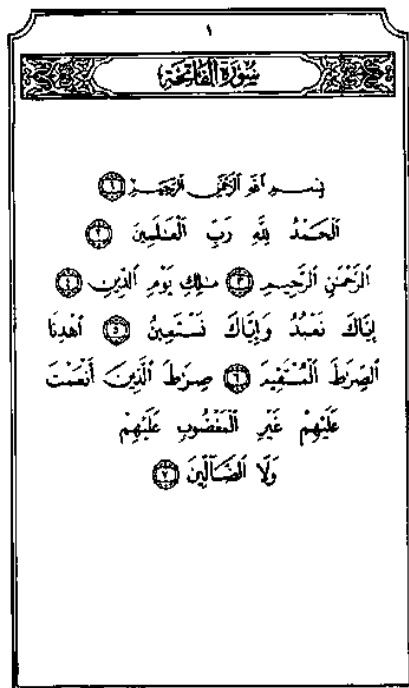 ١
سُورَةُ الْفَاتِحَةِ
بِسْمِ ٱللَّهِ ٱلرَّحْمَٰنِ ٱلرَّحِيمِ ١
ٱلْحَمْدُ لِلَّهِ رَبِّ ٱلْعَٰلَمِينَ ٢
ٱلرَّحْمَٰنِ ٱلرَّحِيمِ ٣ مَٰلِكِ يَوْمِ ٱلدِّينِ ٤
إِيَّاكَ نَعْبُدُ وَإِيَّاكَ نَسْتَعِينُ ٥ ٱهْدِنَا
ٱلصِّرَٰطَ ٱلْمُسْتَقِيمَ ٦ صِرَٰطَ ٱلَّذِينَ أَنْعَمْتَ
عَلَيْهِمْ غَيْرِ ٱلْمَغْضُوبِ عَلَيْهِمْ
وَلَا ٱلضَّآلِّينَ ٧